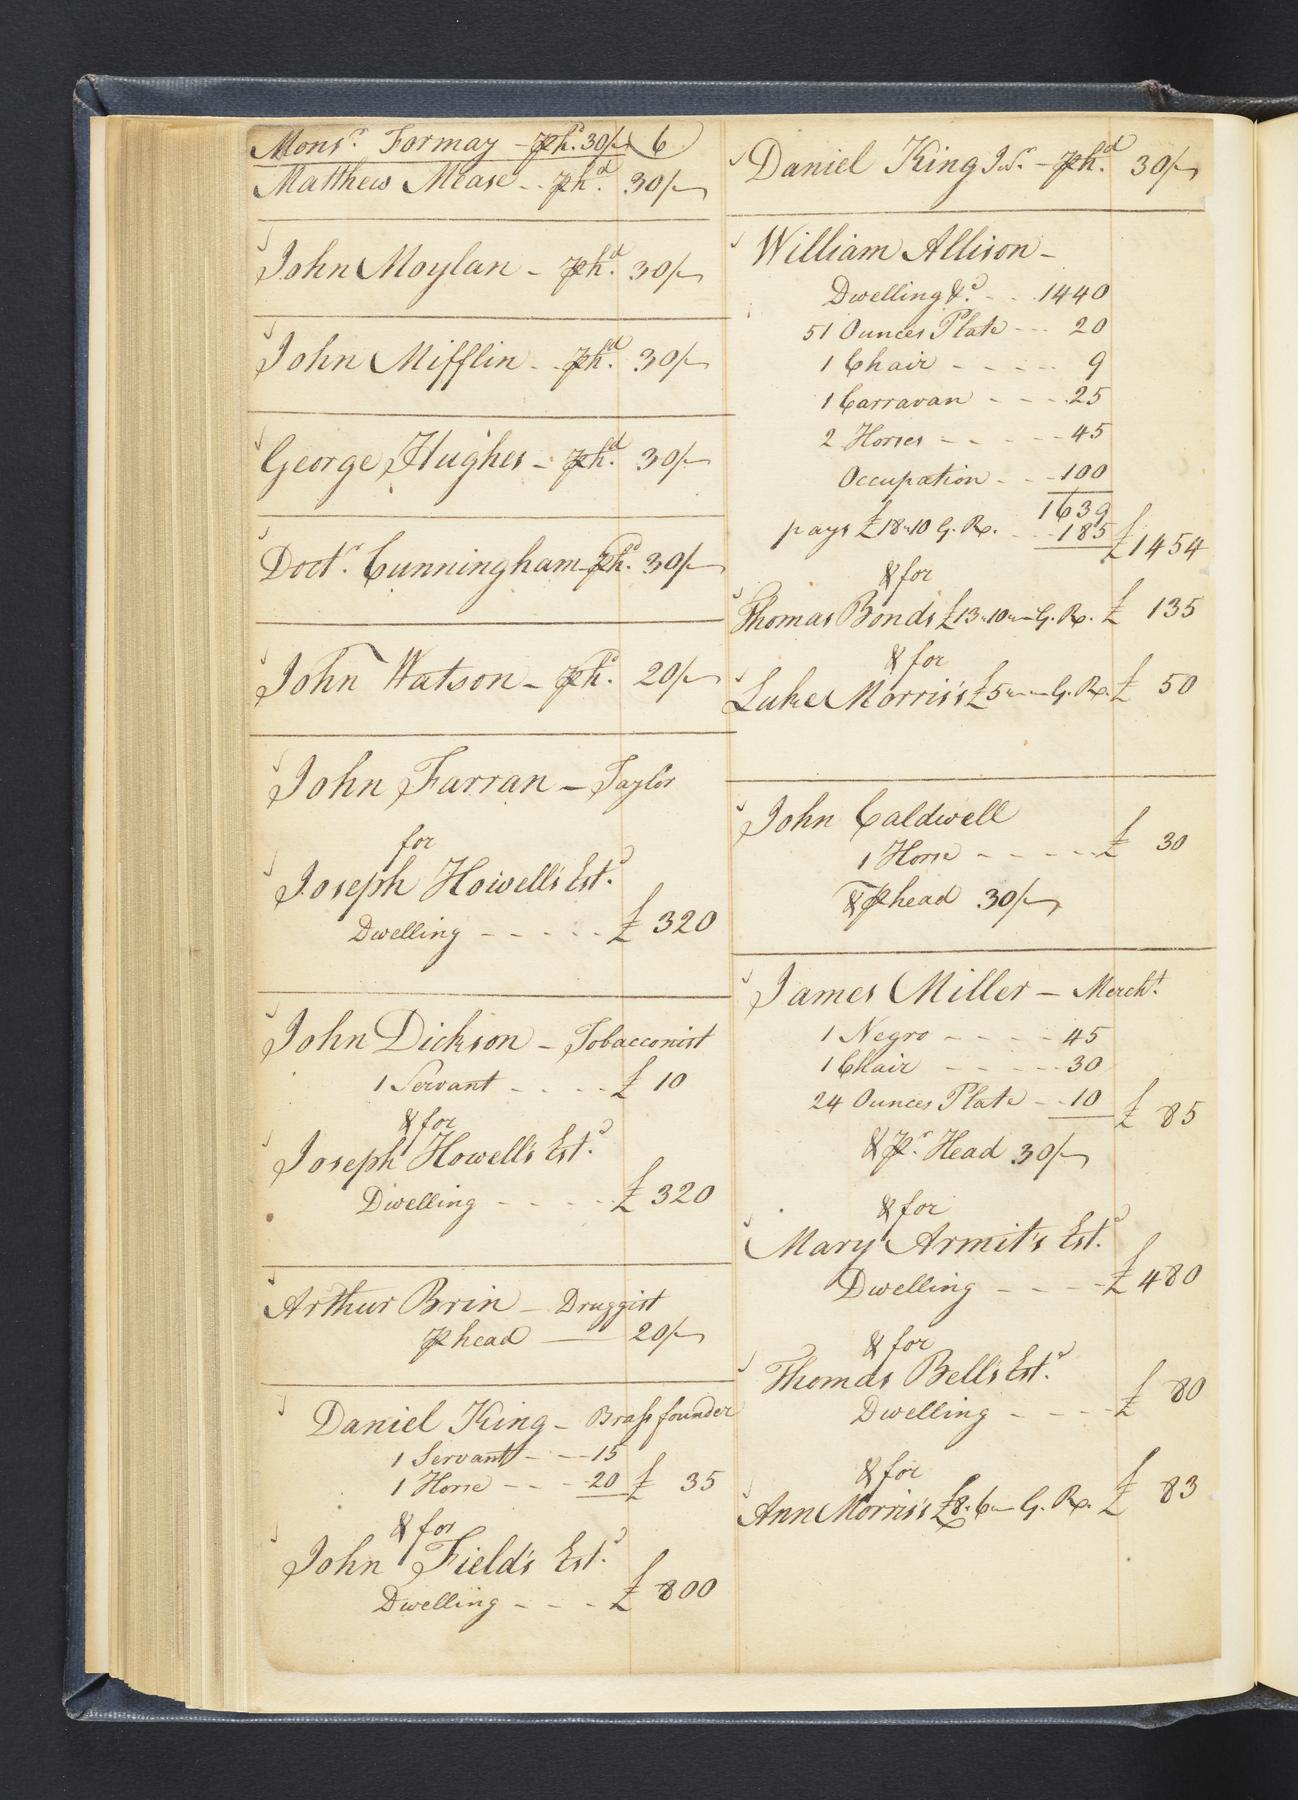 Monsr. Formay - ⅌ hd. 30/- 6
Matthew Mease - ⅌ hd. 30/-
John Moylan - ⅌ hd. 30/-
John Mifflin - ⅌ hd. 30/-
George Hughes - ⅌ hd. 30/-
Doctr. Cunningham ⅌ hd. 30/-
John Watson - ⅌ hd. 20/-
John Farran - Taylor
for
Joseph Howell's Estd.
Dwelling - - - - - £ 320
John Dickson - Tobacconist
1 Servant - - - - £ 10
& for
Joseph Howell's Estd.
Dwelling - - - - - £ 320
Arthur Brin - Druggist
⅌ head — 20/-
Daniel King - Brass founder
1 Servant - - 15
1 Horse - - - 20 £ 35
& for
John Field's Estd.
Dwelling - - - - £ 800
Daniel King Jr. - ⅌ hd. 30/-
William Allison -
Dwelling &c. - - 1440
51 Ounces Plate - - - 20
1 Chair - - - - - 9
1 Carravan - - - - 25
2 Horses - - - - - 45
Occupation - - - 100
1639
pays £18"10 G. R. - - 185 £1454
& for
Thomas Bonds £13"10"- G. R. £ 135
& for
Luke Morris's £5"-"- G. R. £ 50
John Caldwell
1 Horse - - - - - £ 30
& ⅌ head 30/-
James Miller - Mercht.
1 Negro - - - - - 45
1 Chair - - - - - 30
24 Ounces Plate - - 10 £ 85
& ⅌r. Head 30/-
& for
Mary Armit's Estd.
Dwelling - - - - £ 480
& for
Thomas Bell's Estd.
Dwelling - - - - £ 80
& for
Ann Morris's £8"6"- G. R. £ 83